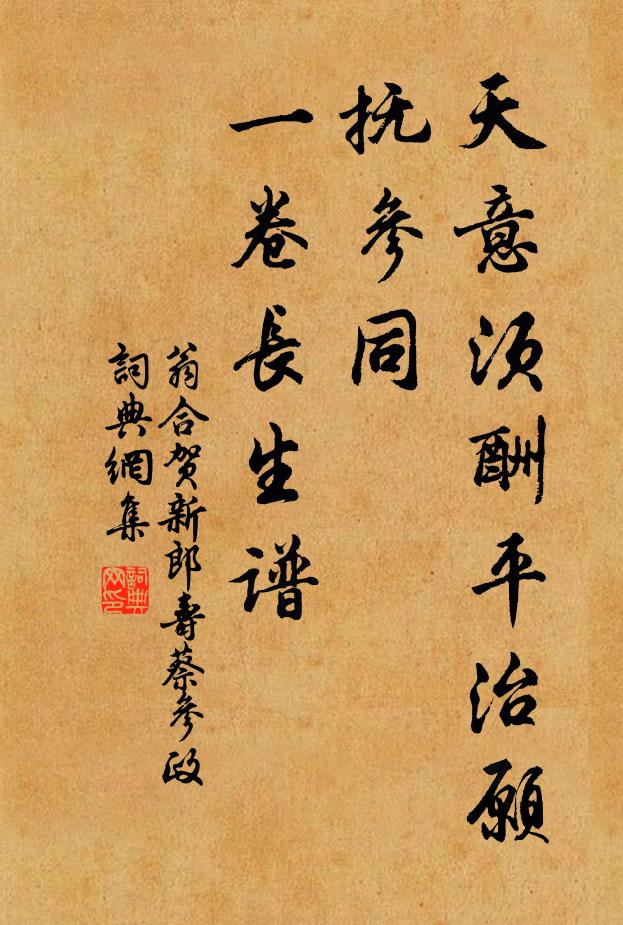 天意须酬平治愿
抚參同
一卷長生谱
翁合贺新郎壽蔡參政
詞典網集
詞典网印